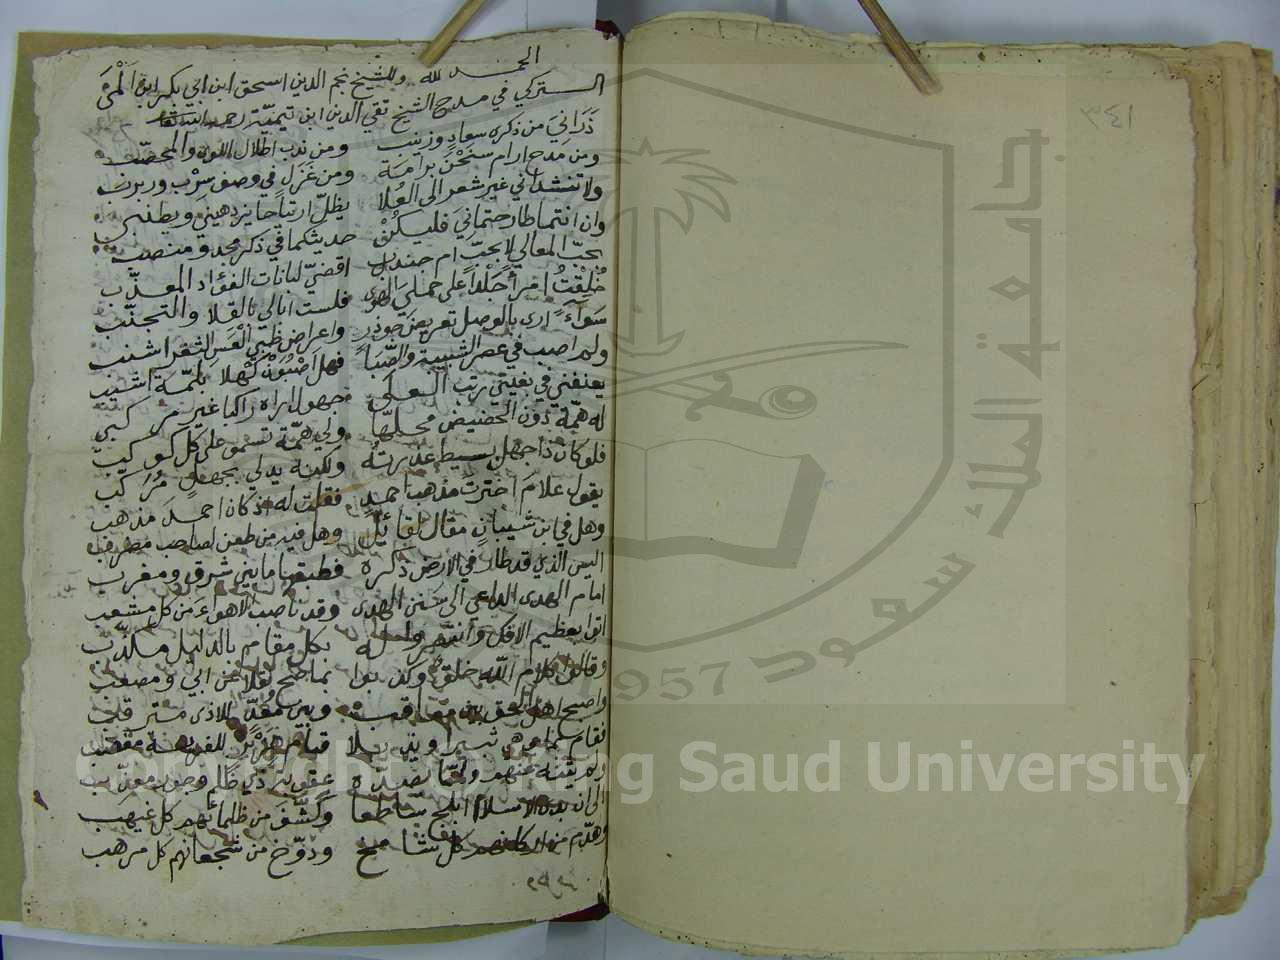 الحمد لله وللشيخ نجم الدين اسحق ابن ابي بكر ابن المى
التركي في مدح الشيخ تقي الدين ابن تيمية رحمه الله تعا
ذراني من ذكرى سعاد وزينب ومن ندب اطلال اللوى والمحصب
ومن مدح ارام سنحن برامة ومن غزل في وصف سرب وربرب
ولا تنشداني غير شعر الى العلا يظل ارتياحا يزدهيني ويطبي
وان انتما طارحتماني فليكن حديثكما في ذكر مجد ومنصب
بحب المعالي لا بحب ام جندب اقضي لبانات الفؤاد المعذب
خلقت امرأ جلدا على حملي الهوى فلست ابالي بالقلا والتجنب
سواء ارى بالوصل تعريض جوذر واعراض ظبي العس الثغر اشنب
ولم اصب في عصر الشبيبة والصبا فهل اصبون كهلا بلمة اشيب
يعنفني في بغيتي رتب العلى جهول اراه راكبا غير مركبي
له همة دون الحضيض محلها ولي همة تسمو على كل كوكب
فلو كان ذا جهل بسيط عذرته ولكنه يدلي بجهل مركب
يقول علام اخترت مذهب احمد فقلت له اذ كان احمد مذهب
وهل في ابن شيبان مقال لقائل وهل فيه من طعن لصاحب مضرب
اليس الذي قد طار في الارض ذكره فطبقها ما بين شرق ومغرب
امام الهدى الداعي الى سنن الهدى وقد ناصب الاهواء من كل مشعب
اتوا بعظيم الافك وانتصروا له بكل مقام بالدليل مكذب
وقالوا كلام الله خلق وكذبوا بما صح نقلا عن ابي ومصعب
واصبح اهل الحق بين معاقب وبين مغد للاذى مترقب
فقام بما يوهي ثبيرا ويذبلا قيام هزبر للفريسة مغضب
ولم يثنه عنهم ولا صده عقوبة ذي ظلم وجور معذب
الى ان بدا الاسلام ابلج ساطعا وكشف من ظلمائهم كل غيهب
وهدم من اركانهم كل شامخ ودوخ من شجعانهم كل مرهب
٣٤١
جامعة الملك سعود
1957
Copyright © King Saud University